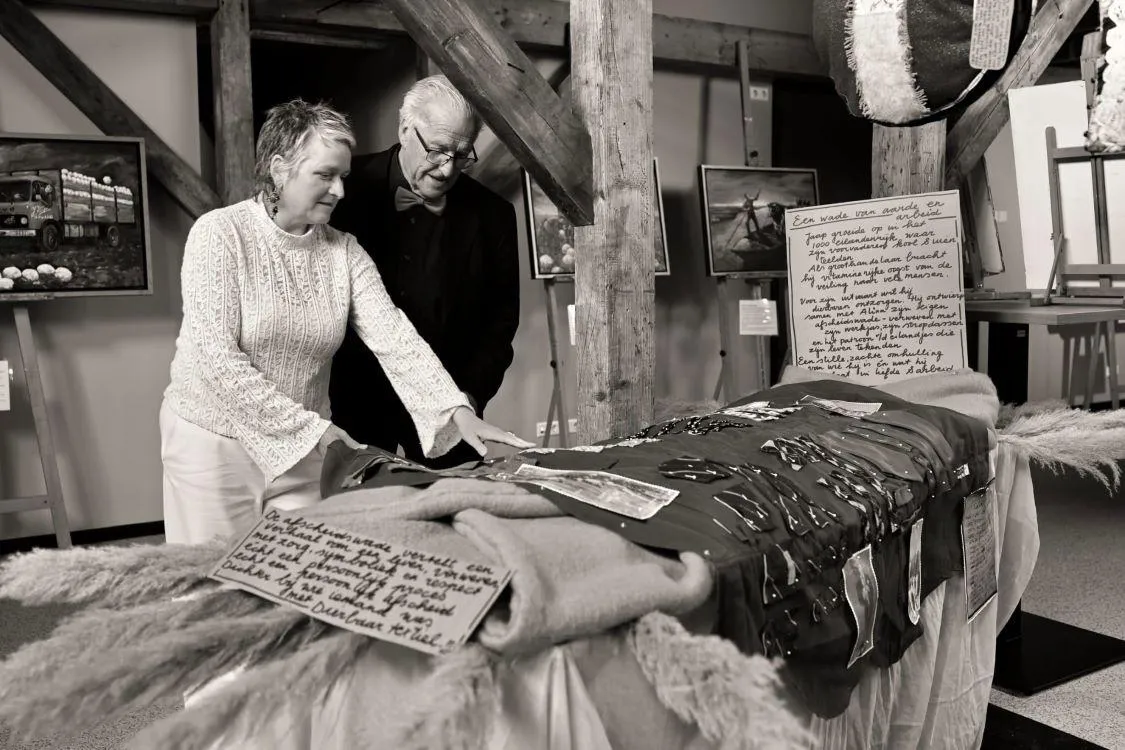 Een wade van aarde en
arbeid
Jaap groeide op in het
1000 eilandenrijk, waar
zijn voorvaderen kool & uien
teelden.
Als groothandelaar bracht
hij vitaminerijke oogst van de
veiling naar vele mensen.
Voor zijn uitvaart wil hij
dierbaren ontzorgen. Hij ontwierp
samen met Alina zijn eigen
afscheidswade - verweven met
zijn werkjas, zijn stropdassen
en het patroon v/d eilandjes die
zijn leven tekenden
Een stille, zachte omhulling
van wie hij is én wat hij
in liefde & arbeid
De afscheidswade vertelt een
verhaal van een leven verweven
met zorg, symboliek en respect
echt een persoonlijk proces
en persoonlijk afscheid
Dichter bij wie iemand was
met Dierbaar textiel"